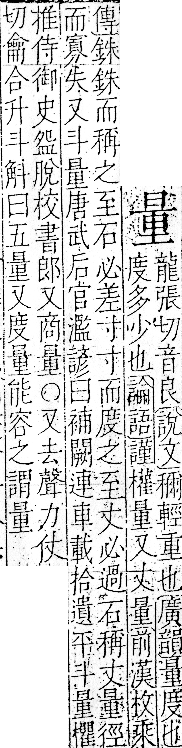 量
龍張切音良說文稱輕重也廣韻量度也
度多少也論語謹權量又丈量前漢枚乘
傳銖銖而稱之至石必差寸寸而度之至丈必過石稱丈量徑
而寡失又斗量唐武后官濫諺曰補闕連車載拾遺平斗量懼
推侍御史盌脫校書郎又商量○又去聲力仗
切龠合升斗斛曰五量又度量能容之謂量